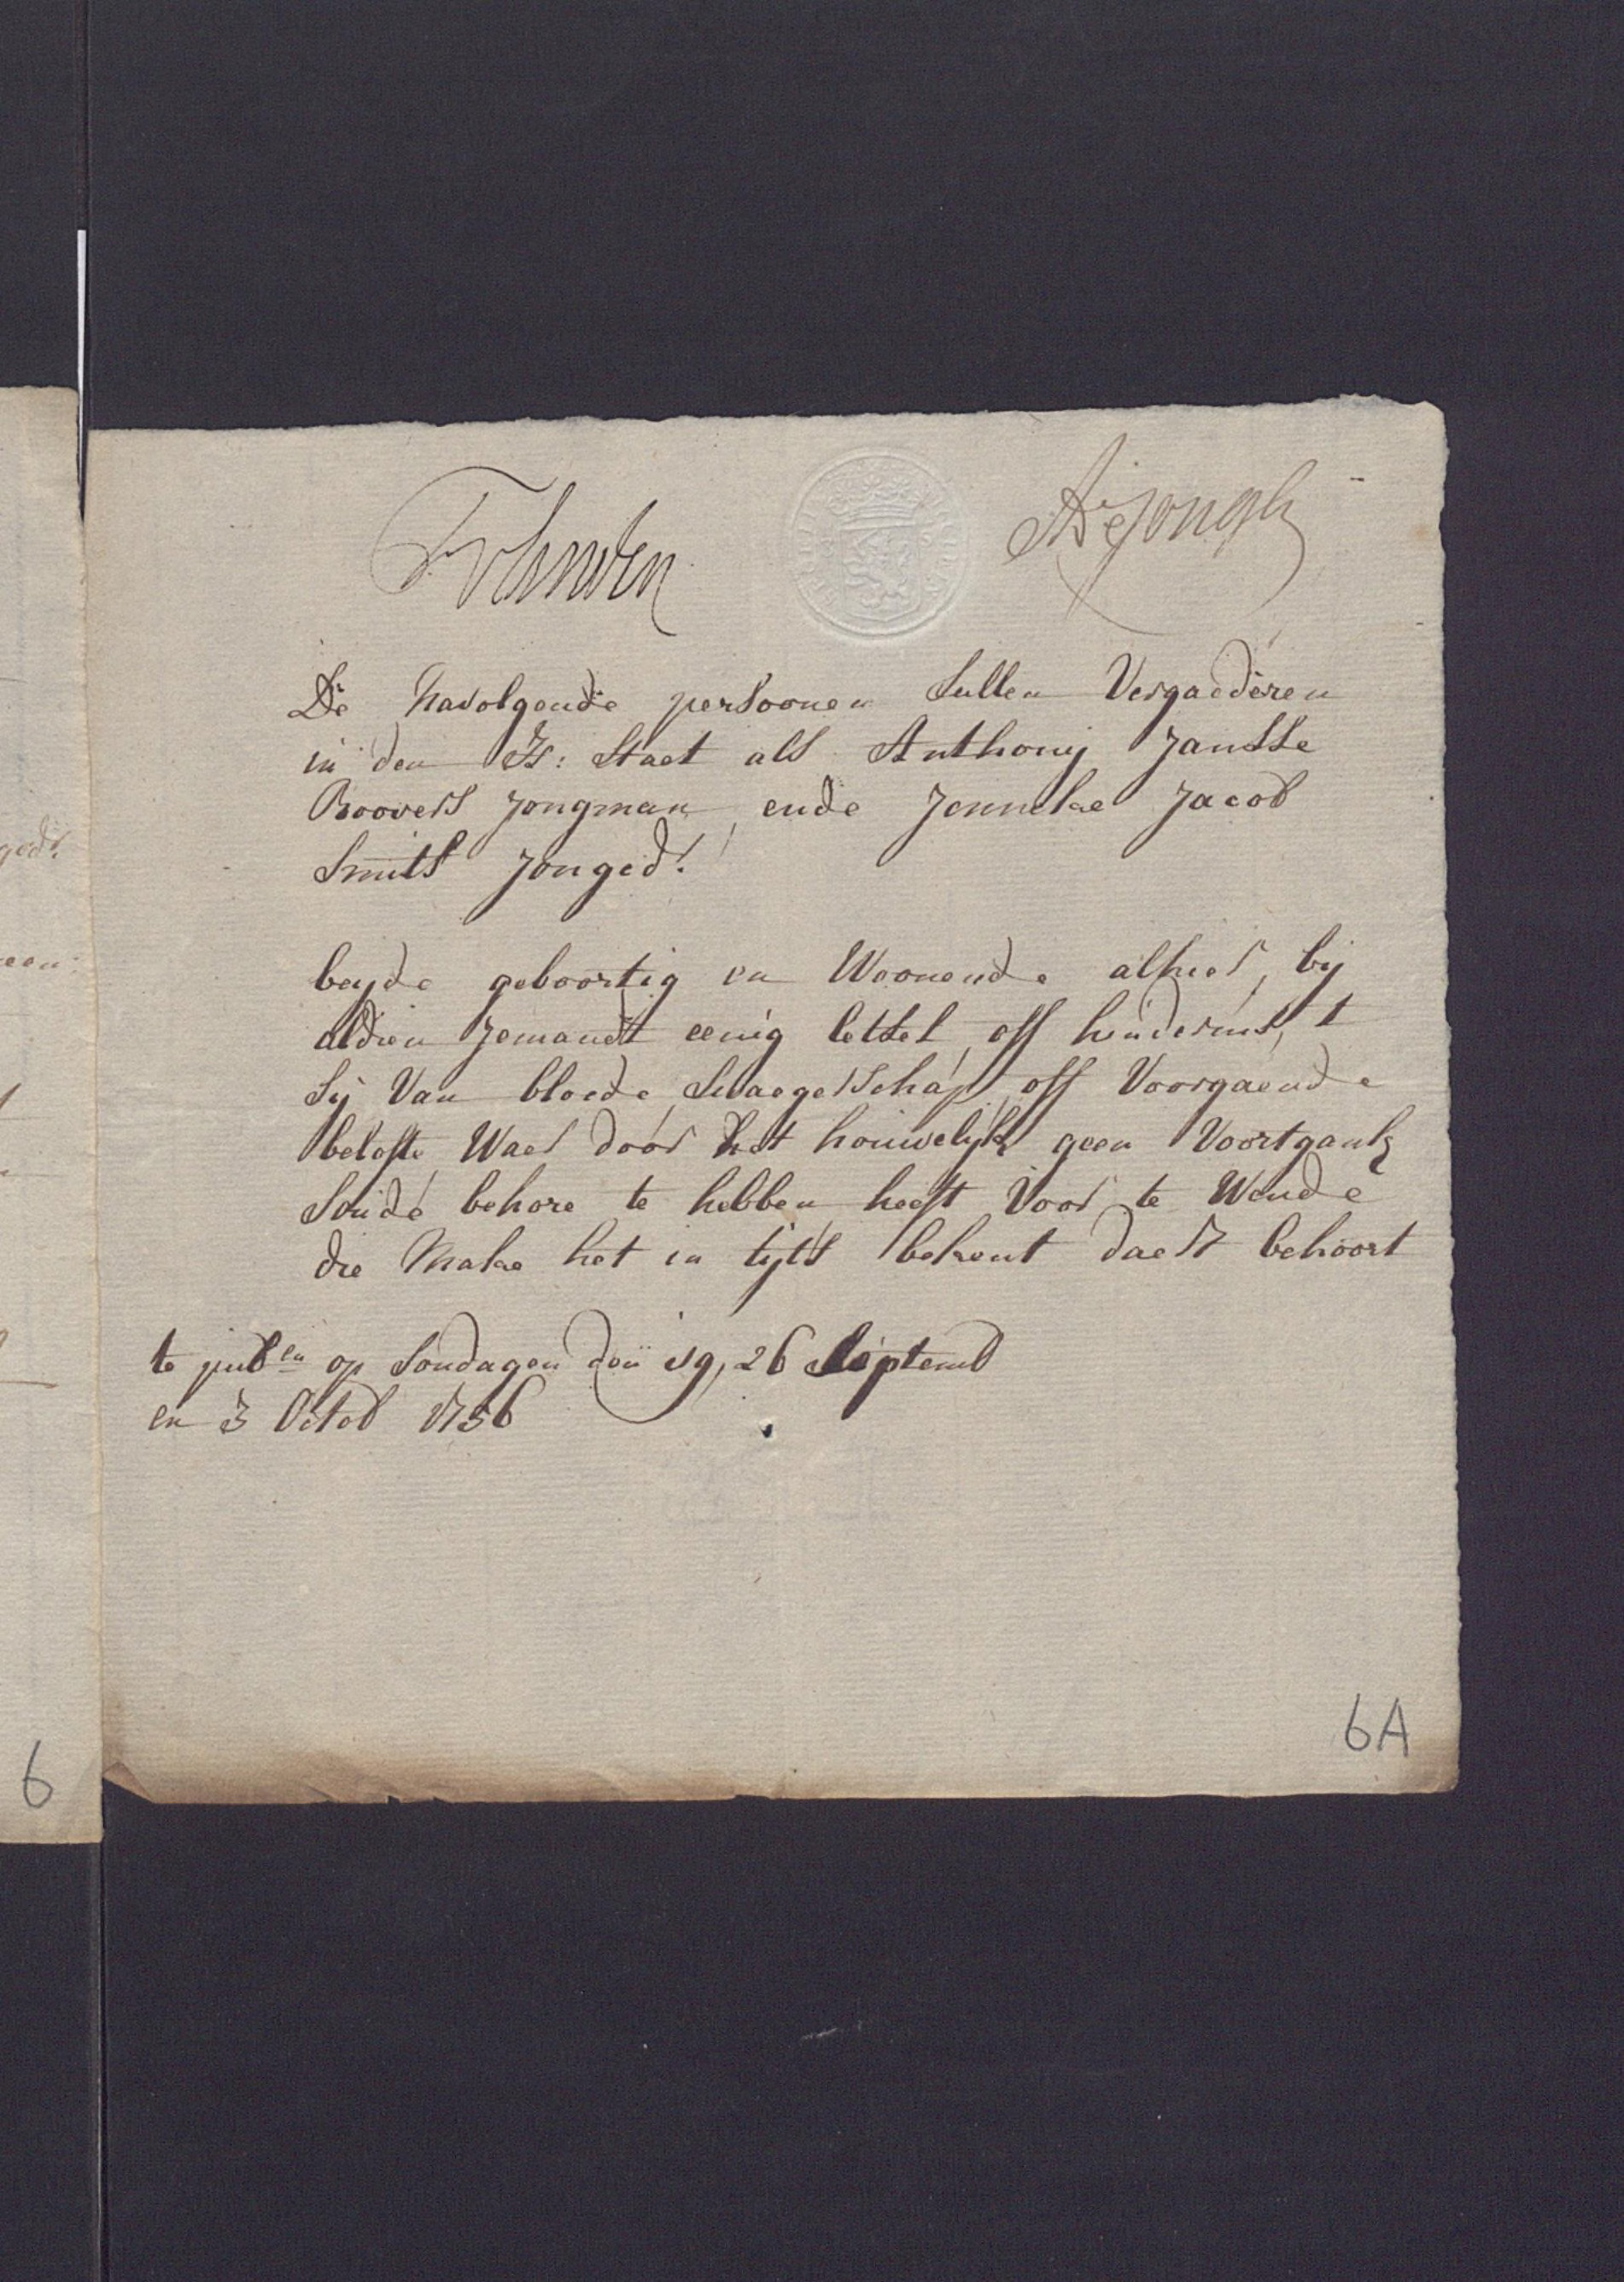 De Navolgende persoonen Sullen Vergaederen
in den H: Staet als Anthonij Jansse
Roovers jongman, ende Jenneke Jacob
Smits jonged.r
beyde geboortig en Woonende alhier, bij
aldien jemandt eenig lettel, off hindernis, t
Sij Van bloede, Swaegerschap, off Voorgaende
belofte, Waer door het houwelijk geen Voortgank
Soude behore te hebben heeft Voor te Wende
die Make het in tijts bekent daer 't behoort
te pub.en op Sondagen den 19, 26 Septemb
en 3 Octob 1756
6A
6